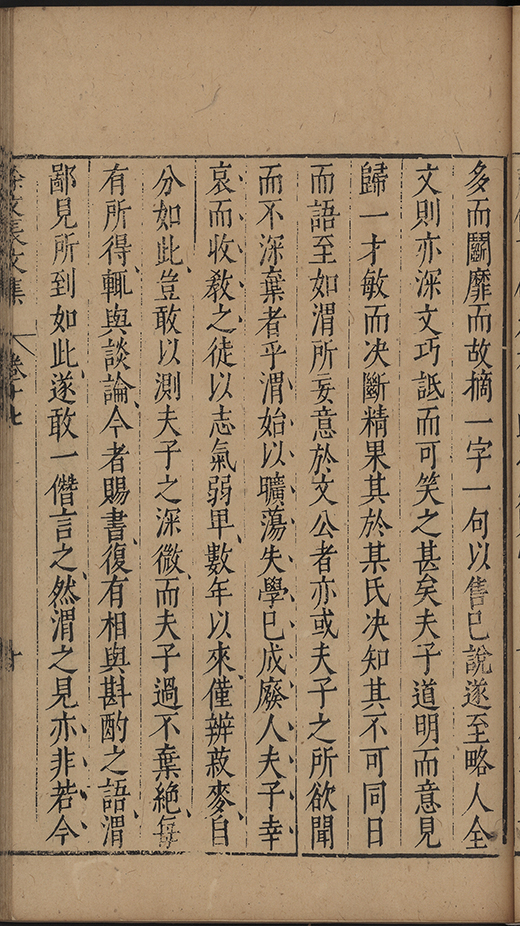 多而鬭靡而故摘一字一句以售已說遂至略人全
文則亦深文巧詆而可笑之甚矣夫子道明而意見
歸一才敏而决斷精果其於某氏决知其不可同日
而語至如渭所妄意於文公者亦或夫子之所欲聞
而不深棄者乎渭始以曠蕩失學已成廢人夫子幸
哀而收教之徒以志氣弱甲數年以來僅辨菽麥自
分如此豈敢以測夫子之深微而夫子過不棄絶每
有所得輒與談論今者賜書復有相與斟酌之語渭
鄙見所到如此遂敢一僭言之然渭之見亦非若今
徐文長文集 卷十七 十